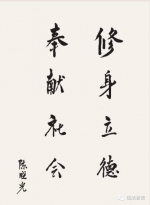 修身立德
奉献社会
陈晓光